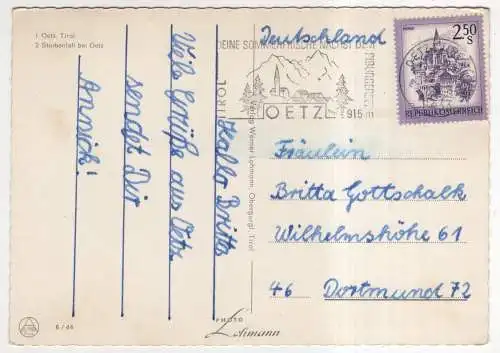 1 Oetz, Tirol
2 Stuibenfall bei Oetz
Hallo Britta
Viele Grüße aus Oetz
sendet Dir
Annick!
6/66
PHOTO
Lohmann
Verlag Werner Lohmann, Obergurgl, Tirol
DEINE SOMMERFRISCHE NÄCHST DEM
TIROL
OETZ
915m
2,50
S
REPUBLIK ÖSTERREICH
Deutschland
Fräulein
Britta Gottschalk
Wilhelmshöhe 61
46 Dortmund 72